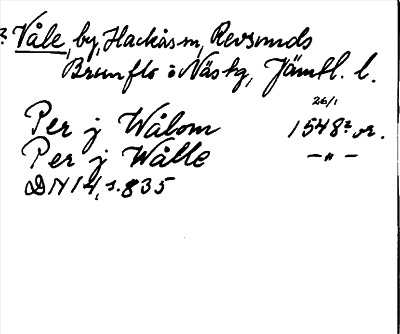 ? Våle, by, Hackås sn, Revsunds
Brunflo o Näs tg, Jämtl. l.
26/1
Per j Wålom 1548? or.
Per j Wålle —"—
DN 14, s. 835